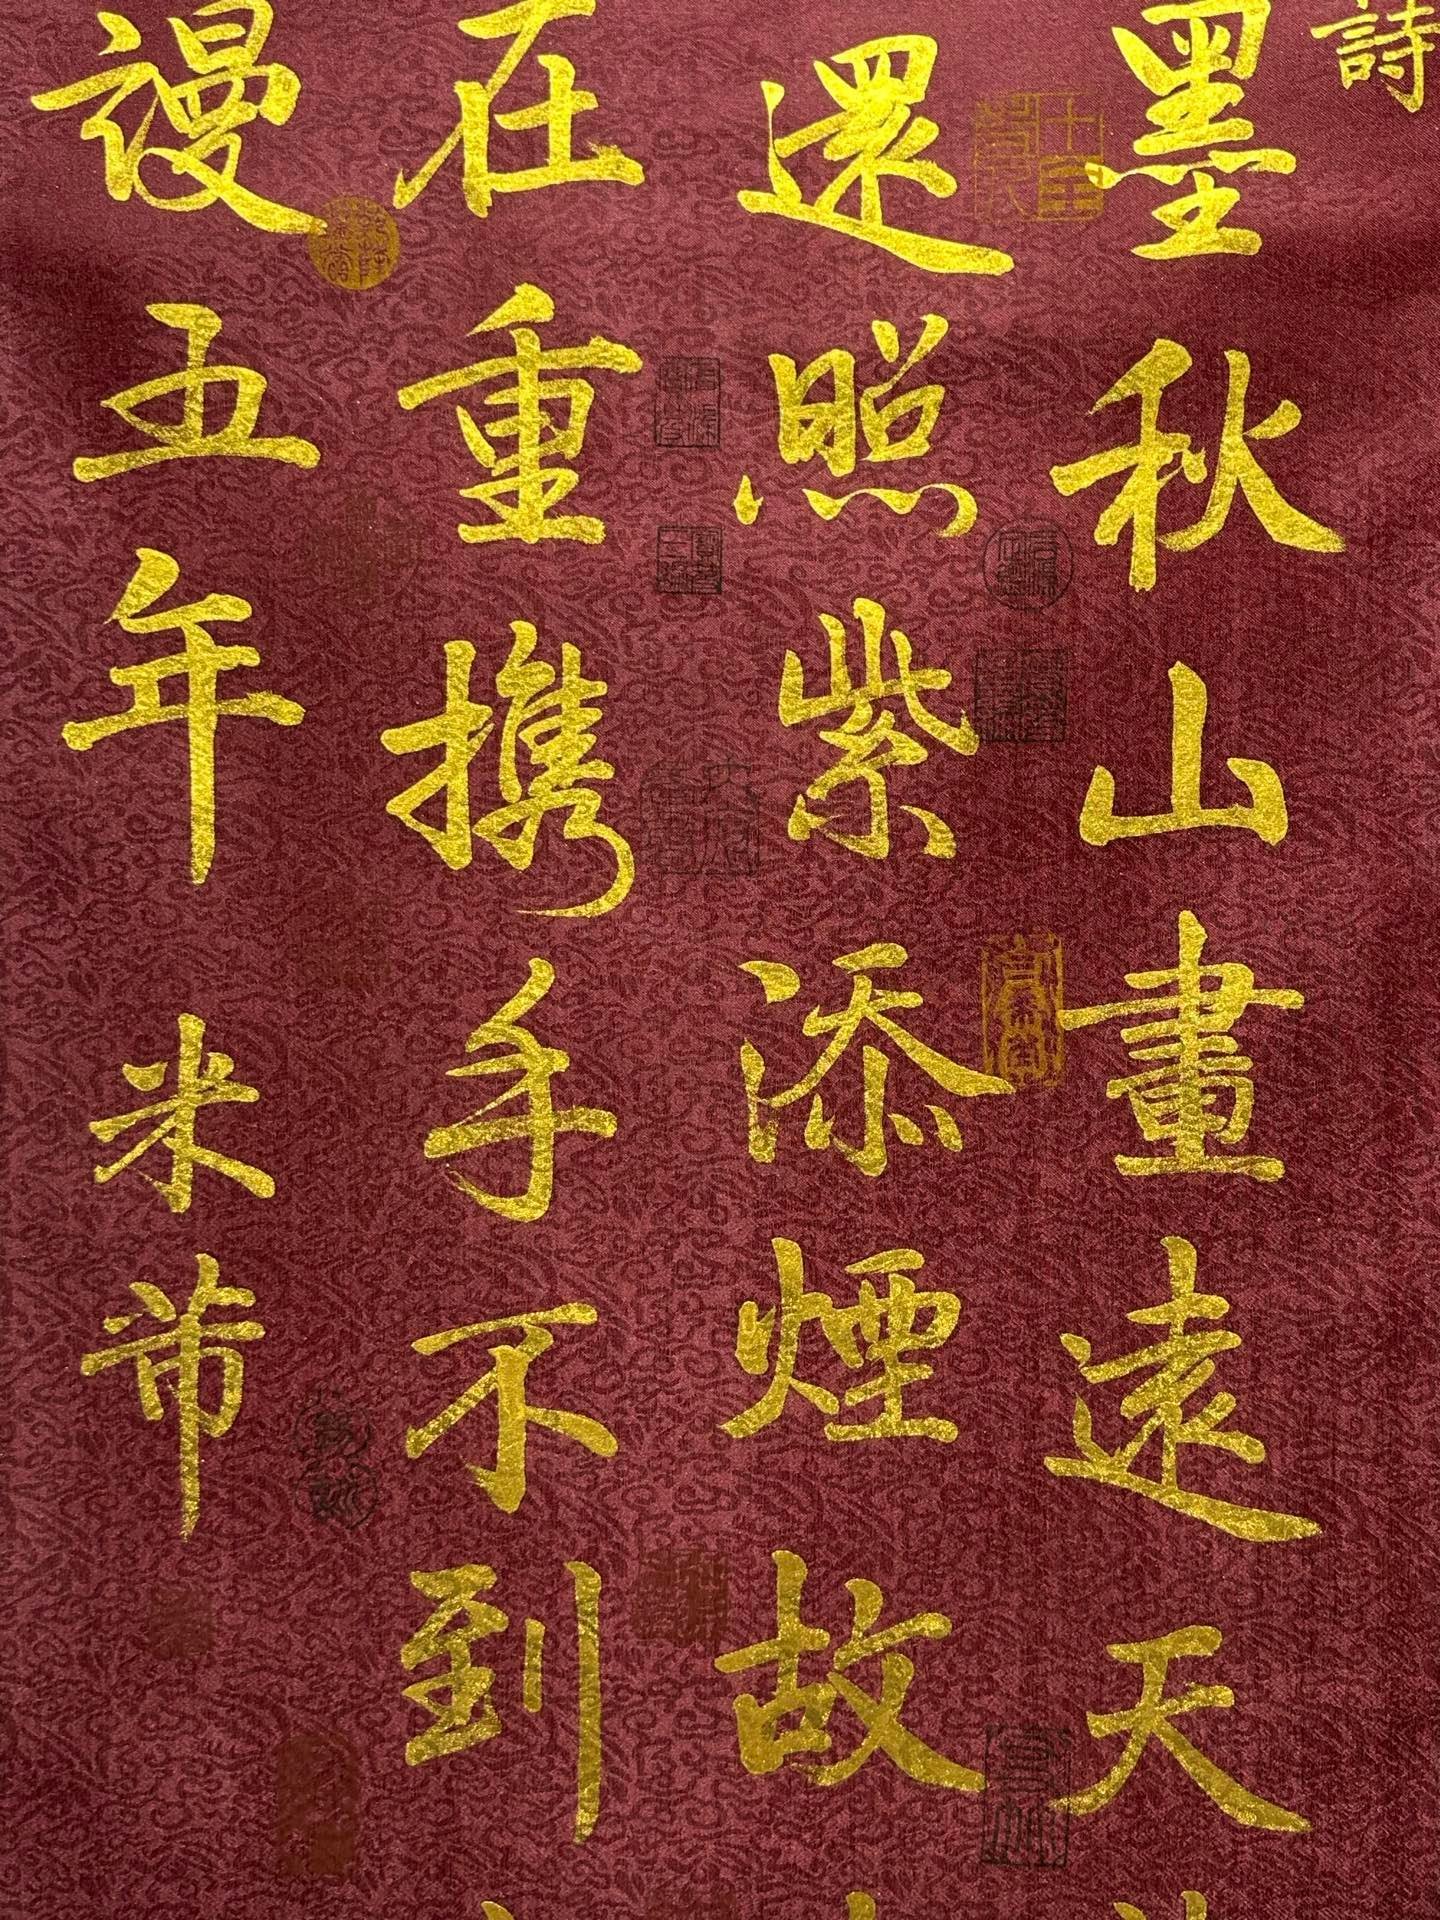 詩
墨秋山畫遠天
還照紫添煙故
在重攜手不到
謾五年 米芾